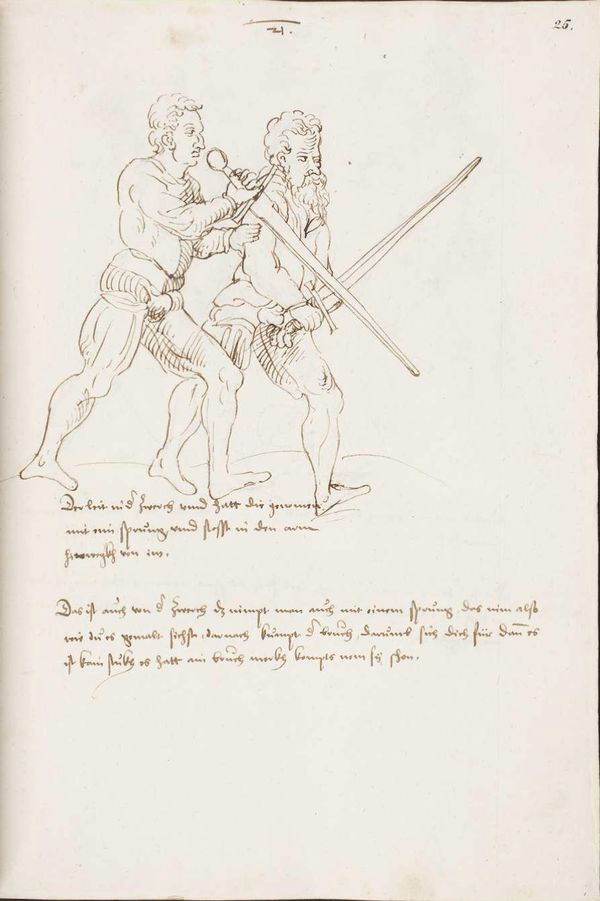 21.
25.
Der leit in d' zwerch vnnd hatt die genomen
mit ein sprung vnnd stosst in den arm
hinwegkh von im.
Das ist auch von d' zwerch dz nimpt man auch mit einem sprung, das nim also
wie du es gemalt sichst, darnach kumpt d' bruch, darumb sich dich für dann es
ist kain stukh es hatt ain bruch merkh